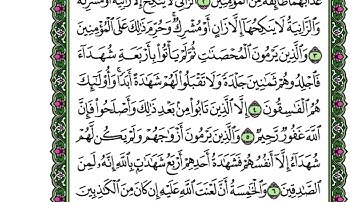 عَذَابَهُمَا طَآئِفَةٌ مِّنَ ٱلْمُؤْمِنِينَ ٢ ٱلزَّانِي لَا يَنكِحُ إِلَّا زَانِيَةً أَوْ مُشْرِكَةً
وَٱلزَّانِيَةُ لَا يَنكِحُهَآ إِلَّا زَانٍ أَوْ مُشْرِكٌ وَحُرِّمَ ذَٰلِكَ عَلَى ٱلْمُؤْمِنِينَ
٣ وَٱلَّذِينَ يَرْمُونَ ٱلْمُحْصَنَٰتِ ثُمَّ لَمْ يَأْتُوا۟ بِأَرْبَعَةِ شُهَدَآءَ
فَٱجْلِدُوهُمْ ثَمَٰنِينَ جَلْدَةً وَلَا تَقْبَلُوا۟ لَهُمْ شَهَٰدَةً أَبَدًا وَأُو۟لَٰٓئِكَ
هُمُ ٱلْفَٰسِقُونَ ٤ إِلَّا ٱلَّذِينَ تَابُوا۟ مِنۢ بَعْدِ ذَٰلِكَ وَأَصْلَحُوا۟ فَإِنَّ
ٱللَّهَ غَفُورٌ رَّحِيمٌ ٥ وَٱلَّذِينَ يَرْمُونَ أَزْوَٰجَهُمْ وَلَمْ يَكُن لَّهُمْ
شُهَدَآءُ إِلَّآ أَنفُسُهُمْ فَشَهَٰدَةُ أَحَدِهِمْ أَرْبَعُ شَهَٰدَٰتٍۭ بِٱللَّهِ إِنَّهُۥ لَمِنَ
ٱلصَّٰدِقِينَ ٦ وَٱلْخَٰمِسَةُ أَنَّ لَعْنَتَ ٱللَّهِ عَلَيْهِ إِن كَانَ مِنَ ٱلْكَٰذِبِينَ